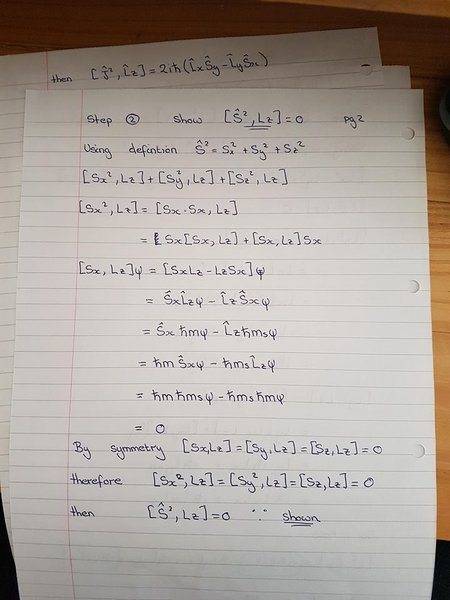 then [Ĵ², L̂z] = 2iħ(L̂xŜy - L̂yŜx)
Step ② Show [Ŝ², Lz] = 0 pg2
Using defintion Ŝ² = Sx² + Sy² + Sz²
[Sx², Lz] + [Sy², Lz] + [Sz², Lz]
[Sx², Lz] = [Sx·Sx, Lz]
= Sx[Sx, Lz] + [Sx, Lz]Sx
[Sx, Lz]φ = [SxLz - LzSx]φ
= ŜxL̂zφ - L̂zŜxφ
= Ŝxħmφ - L̂zħmsφ
= ħmŜxφ - ħmsL̂zφ
= ħmħmsφ - ħmsħmφ
= 0
By symmetry [Sx,Lz] = [Sy,Lz] = [Sz,Lz] = 0
therefore [Sx², Lz] = [Sy², Lz] = [Sz, Lz] = 0
then [Ŝ², Lz] = 0 ∵ shown